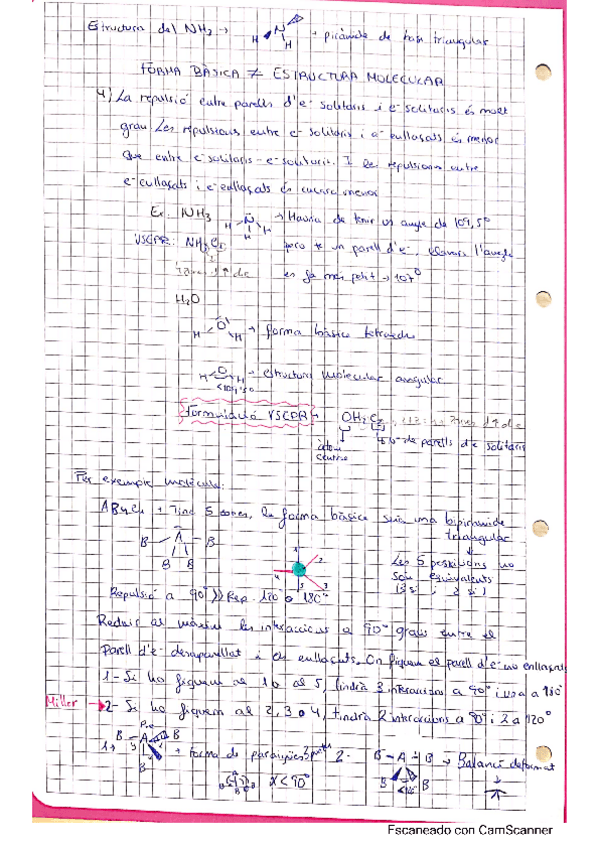 Estructura del NH3 → N H H → piràmide de base triangular
FORMA BÀSICA ≠ ESTRUCTURA MOLECULAR
4) La repulsió entre parells d'e- solitaris i e- solitaris és molt
gran. Les repulsions entre e- solitaris i e- enllaçats és menor
que entre e- solitaris - e- solitaris. I les repulsions entre
e- enllaçats i e- enllaçats és encara menor
Ex. NH3 H N H H → Hauria de tenir un angle de 109,5°
VSEPR: NH3E1 però té un parell d'e-, l'angle
es fa més petit → 107°
H2O
H O H → forma bàsica tetraedre
H O H → estructura molecular angular
<109,5°
Formulació VSEPR → OH2E2
àtom central nº de parells d'e- solitaris
Per exemple molècula:
AB4E1 → Tinc 5 zones, la forma bàsica seria una bipiràmide
triangular
B A B
B B
1 2 3 4 5
Les 5 posicions no
són equivalents
Repulsió a 90° >> Rep. 120 o 180°
Reduir al màxim les interaccions a 90° graus entre el
parell d'e- desaparellat i els enllaçats. On fiquem el parell d'e- no enllaçats
1- Si ho fiquem al 1 o al 5, tindrà 3 interaccions a 90° i una a 180°
Millor → 2- Si ho fiquem al 2, 3 o 4, tindrà 2 interaccions a 90° i 2 a 120°
1→ B A B B B → Forma de
x<90°
2. B-A-B B B → Balancí deformat
Escaneado con CamScanner